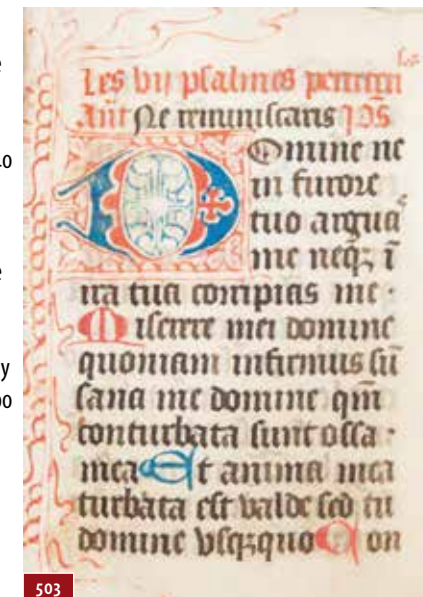 Les vii psalmes peniten
Ant Ne reminiscaris ps
Domine ne
in furore
tuo arguas
me neqz ī
ira tua corripias me ·
Miserere mei domine
quoniam infirmus sū
sana me domine qm̄
conturbata sunt ossa ·
mea Et anima mea
turbata est valde sed tu
domine vsqzquo Con
503